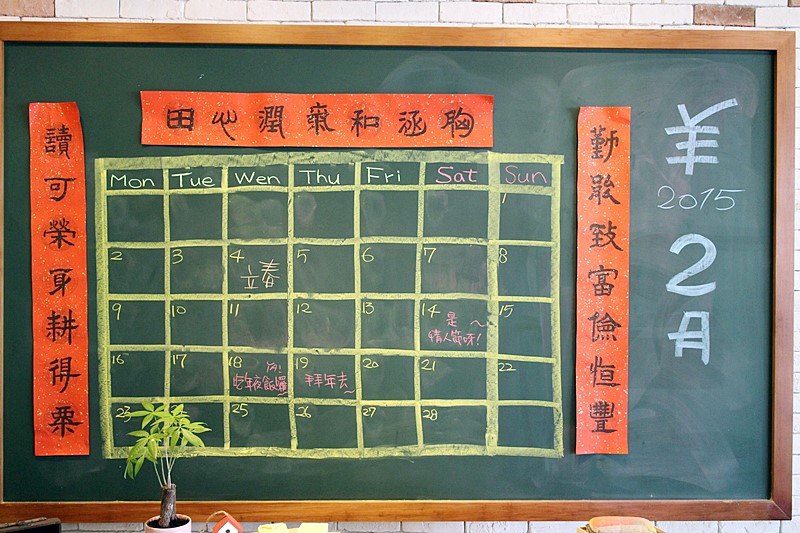 胸涵和氣潤心田
勤能致富儉恒豐
讀可榮身耕得粟
羊
2015
2月
Mon Tue Wen Thu Fri Sat Sun
1
2 3 4 5 6 7 8
立春
9 10 11 12 13 14 15
是~
情人節呀!
16 17 18 19 20 21 22
吃年夜飯囉 拜年去~
23 25 26 27 28